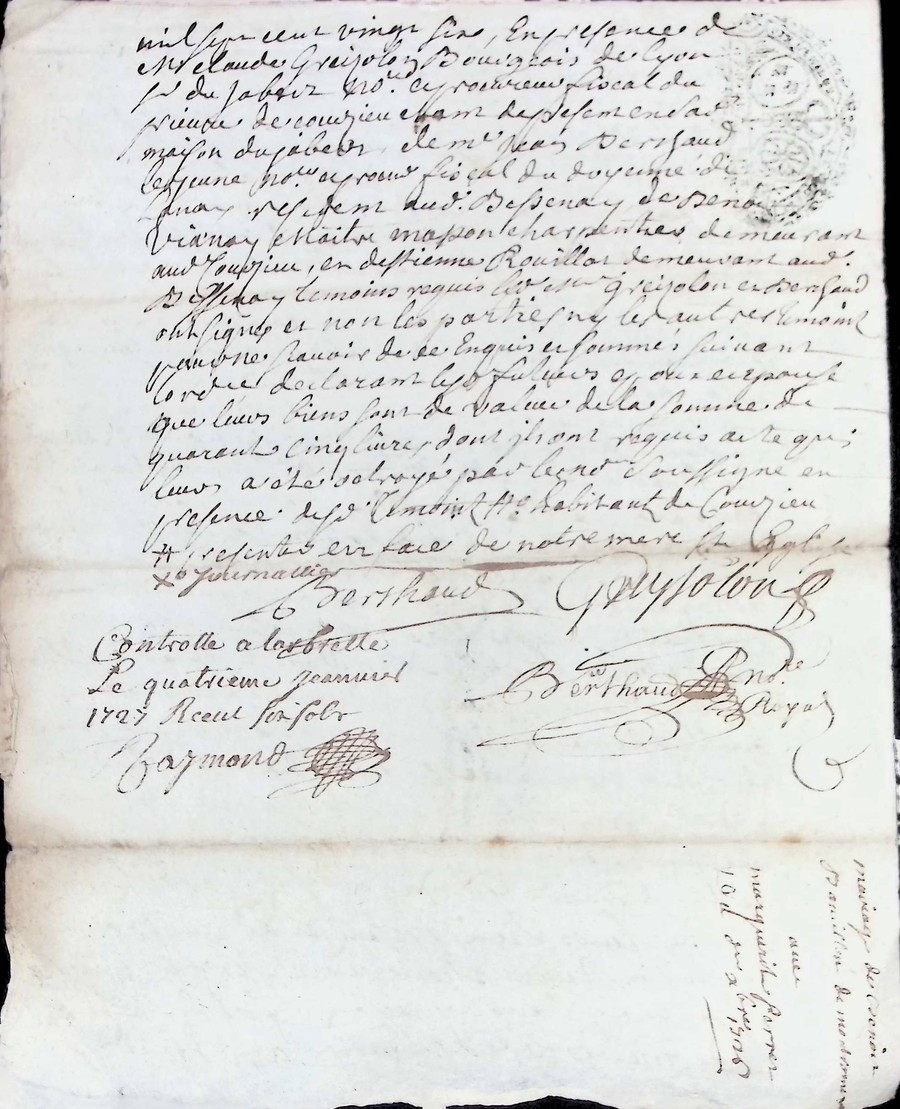 mil sept cent vingt six, En presence de
Mr claude Greisolon Bourgeois de Lyon
sr du jabert No.re et procureur fiscal du
prieuré de couzieu etant de present en sa
maison du jabert, de mr Jean Berthaud
le jeune No.re et procur fiscal du doyenné de
resident aud. Bessenay de Benoit
Viannay Maitre masson charpentier demeurant
aud Couzieu, et destienne Rouillat demeurant aud.
Bessenay temoins requis led. Sr Greisolon et Berthaud
ont signé et non les parties ny les autres temoins
pour ne scavoir de ce Enquis et sommés suivant
lord.ce declarant lesd futurs epoux et epouse
que leurs biens sont de valeur de la somme de
quarant cinq livres, dont jls ont requis acte qui
leurs a été octroyé par le no.re soussigné en
presence desd. temoins # habitant de Couzieu
# presenter en face de notre mere Ste Eglise
X journallier
Berthaud Greysolon
Controlle a larbrelle
Le quatrieme jeanvier
1727 Receu six sols
Raymond
Berthaud No.re
Royal
mariage de Benoit
de
avec
marguerit
10d de xbre 1726